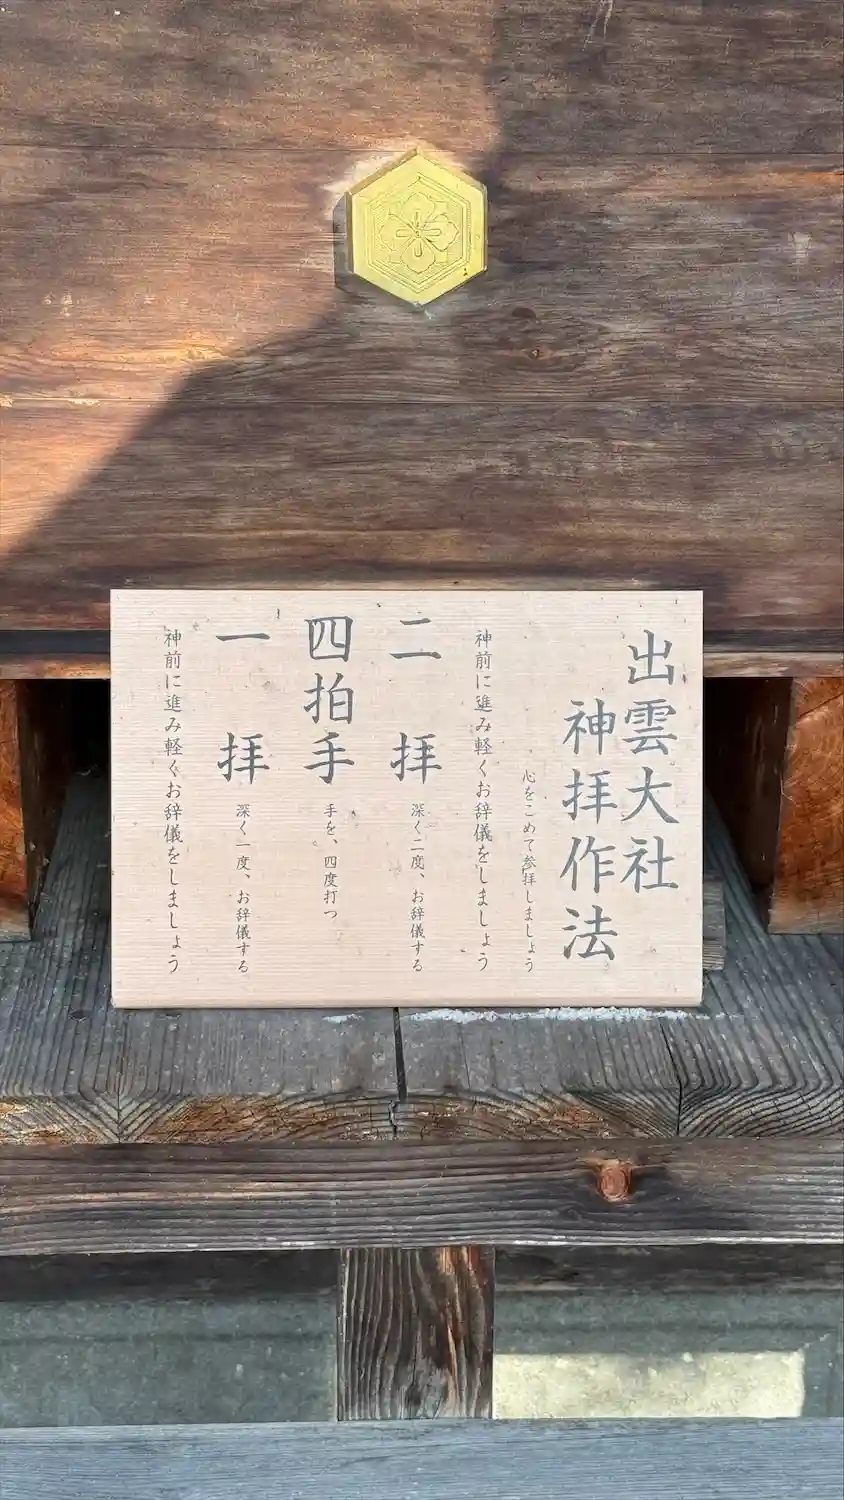 出雲大社
神拝作法
心をこめて参拝しましょう
神前に進み軽くお辞儀をしましょう
二 拝 深く二度、お辞儀する
四拍手 手を、四度打つ
一 拝 深く一度、お辞儀する
神前に進み軽くお辞儀をしましょう